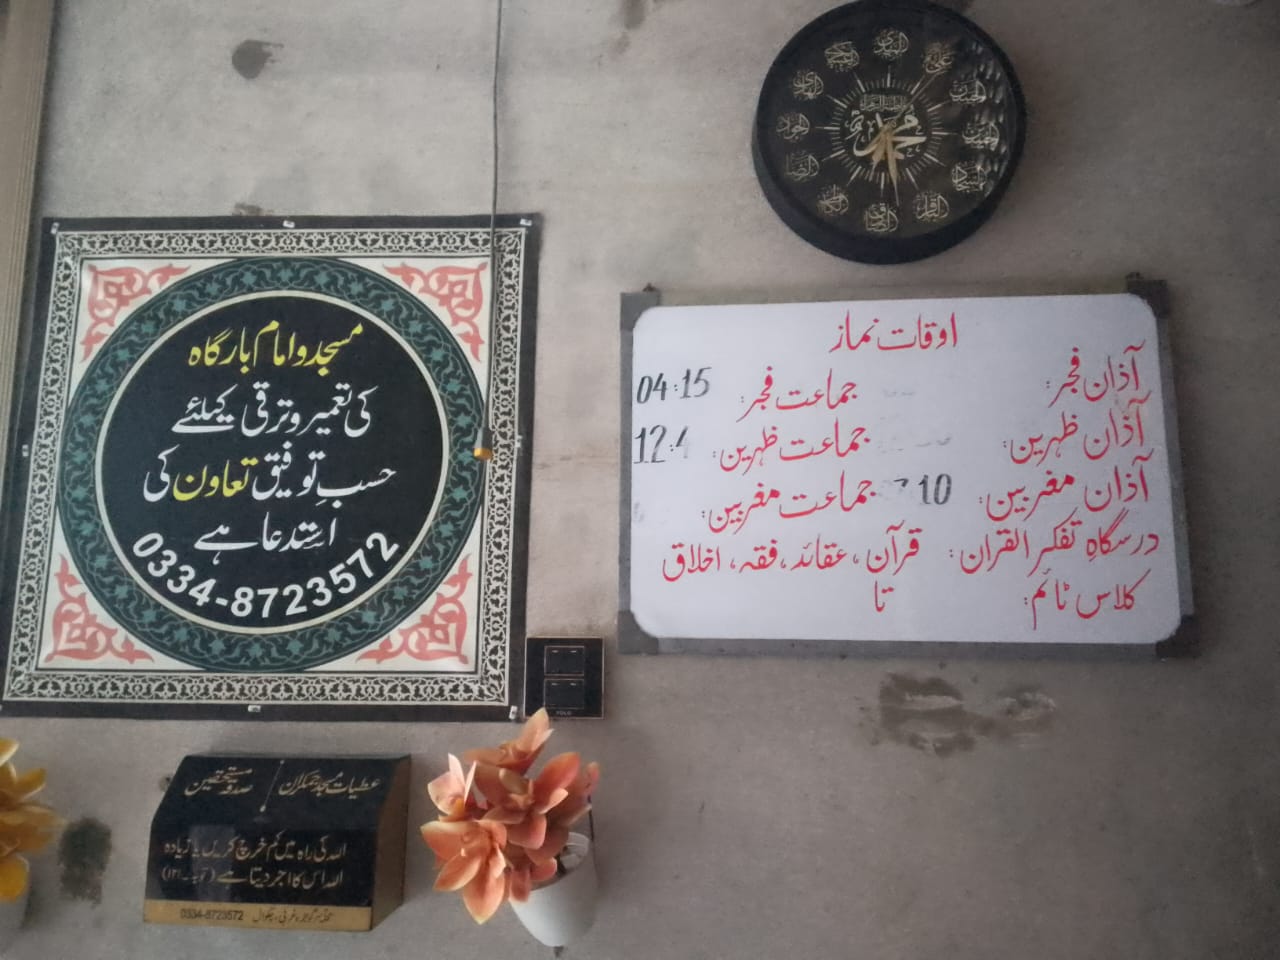 مسجد و امام بارگاہ
کی تعمیر و ترقی کیلئے
حسبِ توفیق تعاون کی
استدعا ہے
0334-8723572
اوقات نماز
آذان فجر: جماعت فجر: 04:15
آذان ظہرین: جماعت ظہرین: 12:4
آذان مغربین: 10 جماعت مغربین:
درسگاہِ تفکر القران: قرآن، عقائد، فقہ، اخلاق
کلاس ٹائم: تا
محمد
علی
عطیات مسجد جمکران / صدقہ مستحقین
اللہ کی راہ میں کم خرچ کریں یا زیادہ
اللہ اس کا اجر دیتا ہے (توبہ۔۱۲۱)
غربی، چکوال 0334-8723572
POLO